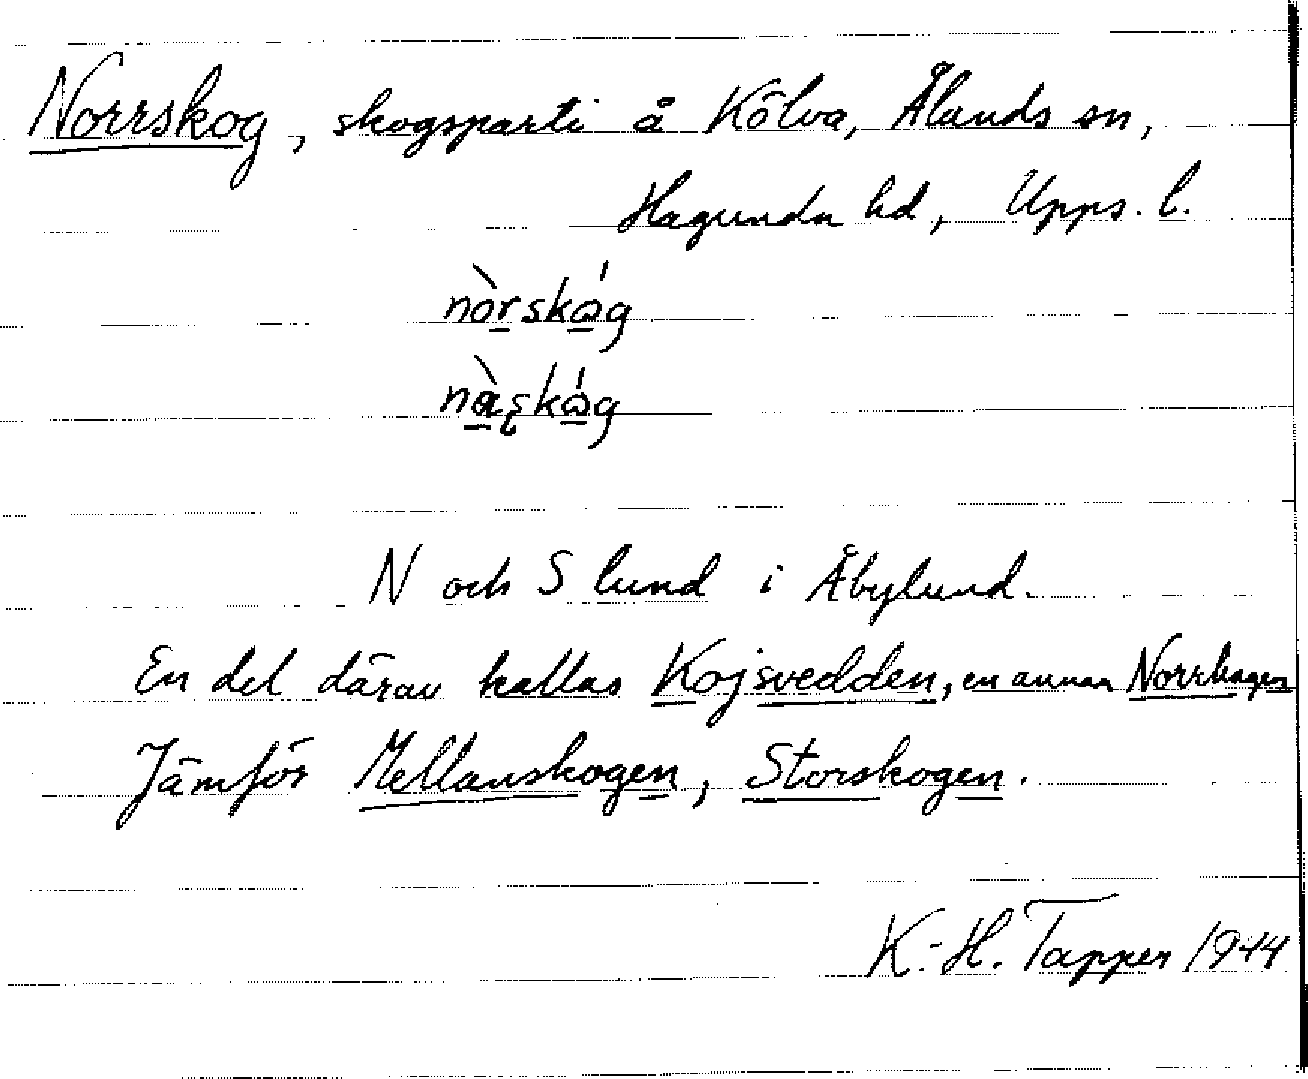 Norrskog, skogsparti å Kölva, Ålands sn,
Hagunda hd, Upps. l.
nòrskǻg
N och S lund i Åbylund.
En del därav kallas Kojsvedden, en annan Norrhagen
Jämför Mellanskogen, Storskogen.
K.-H. Tapper 1944